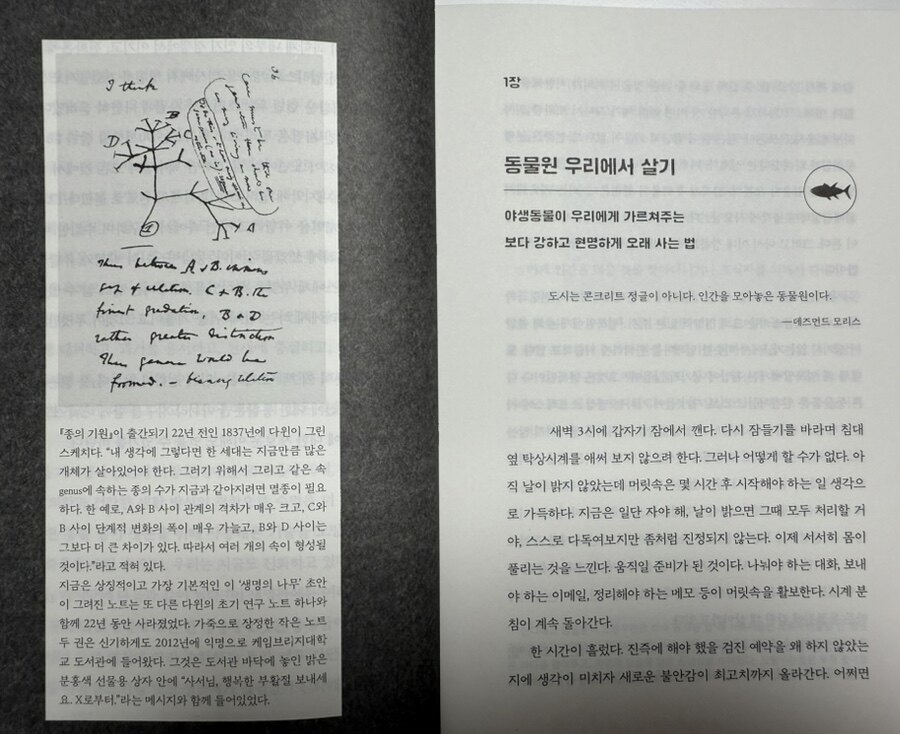 I think
D
B
C
A
Thus between A & B. immense
gap of relation. C & B. the
finest gradation, B & D
rather greater distinction
Thus genera would be
formed. — bearing relation
『종의 기원』이 출간되기 22년 전인 1837년에 다윈이 그린
스케치다. “내 생각에 그렇다면 한 세대는 지금만큼 많은
개체가 살아있어야 한다. 그러기 위해서 그리고 같은 속
genus에 속하는 종의 수가 지금과 같아지려면 멸종이 필요
하다. 한 예로, A와 B 사이 관계의 격차가 매우 크고, C와
B 사이 단계적 변화의 폭이 매우 가늘고, B와 D 사이는
그보다 더 큰 차이가 있다. 따라서 여러 개의 속이 형성될
것이다.”라고 적혀 있다.
지금은 상징적이고 가장 기본적인 이 ‘생명의 나무’ 초안
이 그려진 노트는 또 다른 다윈의 초기 연구 노트 하나와
함께 22년 동안 사라졌었다. 가죽으로 장정한 작은 노트
두 권은 신기하게도 2012년에 익명으로 케임브리지대학
교 도서관에 들어왔다. 그것은 도서관 바닥에 놓인 밝은
분홍색 선물용 상자 안에 “사서님, 행복한 부활절 보내세
요. X로부터.”라는 메시지와 함께 들어있었다.
1장
동물원 우리에서 살기
야생동물이 우리에게 가르쳐주는
보다 강하고 현명하게 오래 사는 법
도시는 콘크리트 정글이 아니다. 인간을 모아놓은 동물원이다.
—데즈먼드 모리스
새벽 3시에 갑자기 잠에서 깬다. 다시 잠들기를 바라며 침대
옆 탁상시계를 애써 보지 않으려 한다. 그러나 어떻게 할 수가 없다. 아
직 날이 밝지 않았는데 머릿속은 몇 시간 후 시작해야 하는 일 생각으
로 가득하다. 지금은 일단 자야 해, 날이 밝으면 그때 모두 처리할 거
야, 스스로 다독여보지만 좀처럼 진정되지 않는다. 이제 서서히 몸이
풀리는 것을 느낀다. 움직일 준비가 된 것이다. 나눠야 하는 대화, 보내
야 하는 이메일, 정리해야 하는 메모 등이 머릿속을 활보한다. 시계 분
침이 계속 돌아간다.
한 시간이 흘렀다. 진즉에 해야 했을 검진 예약을 왜 하지 않았는
지에 생각이 미치자 새로운 불안감이 최고치까지 올라간다. 어쩌면